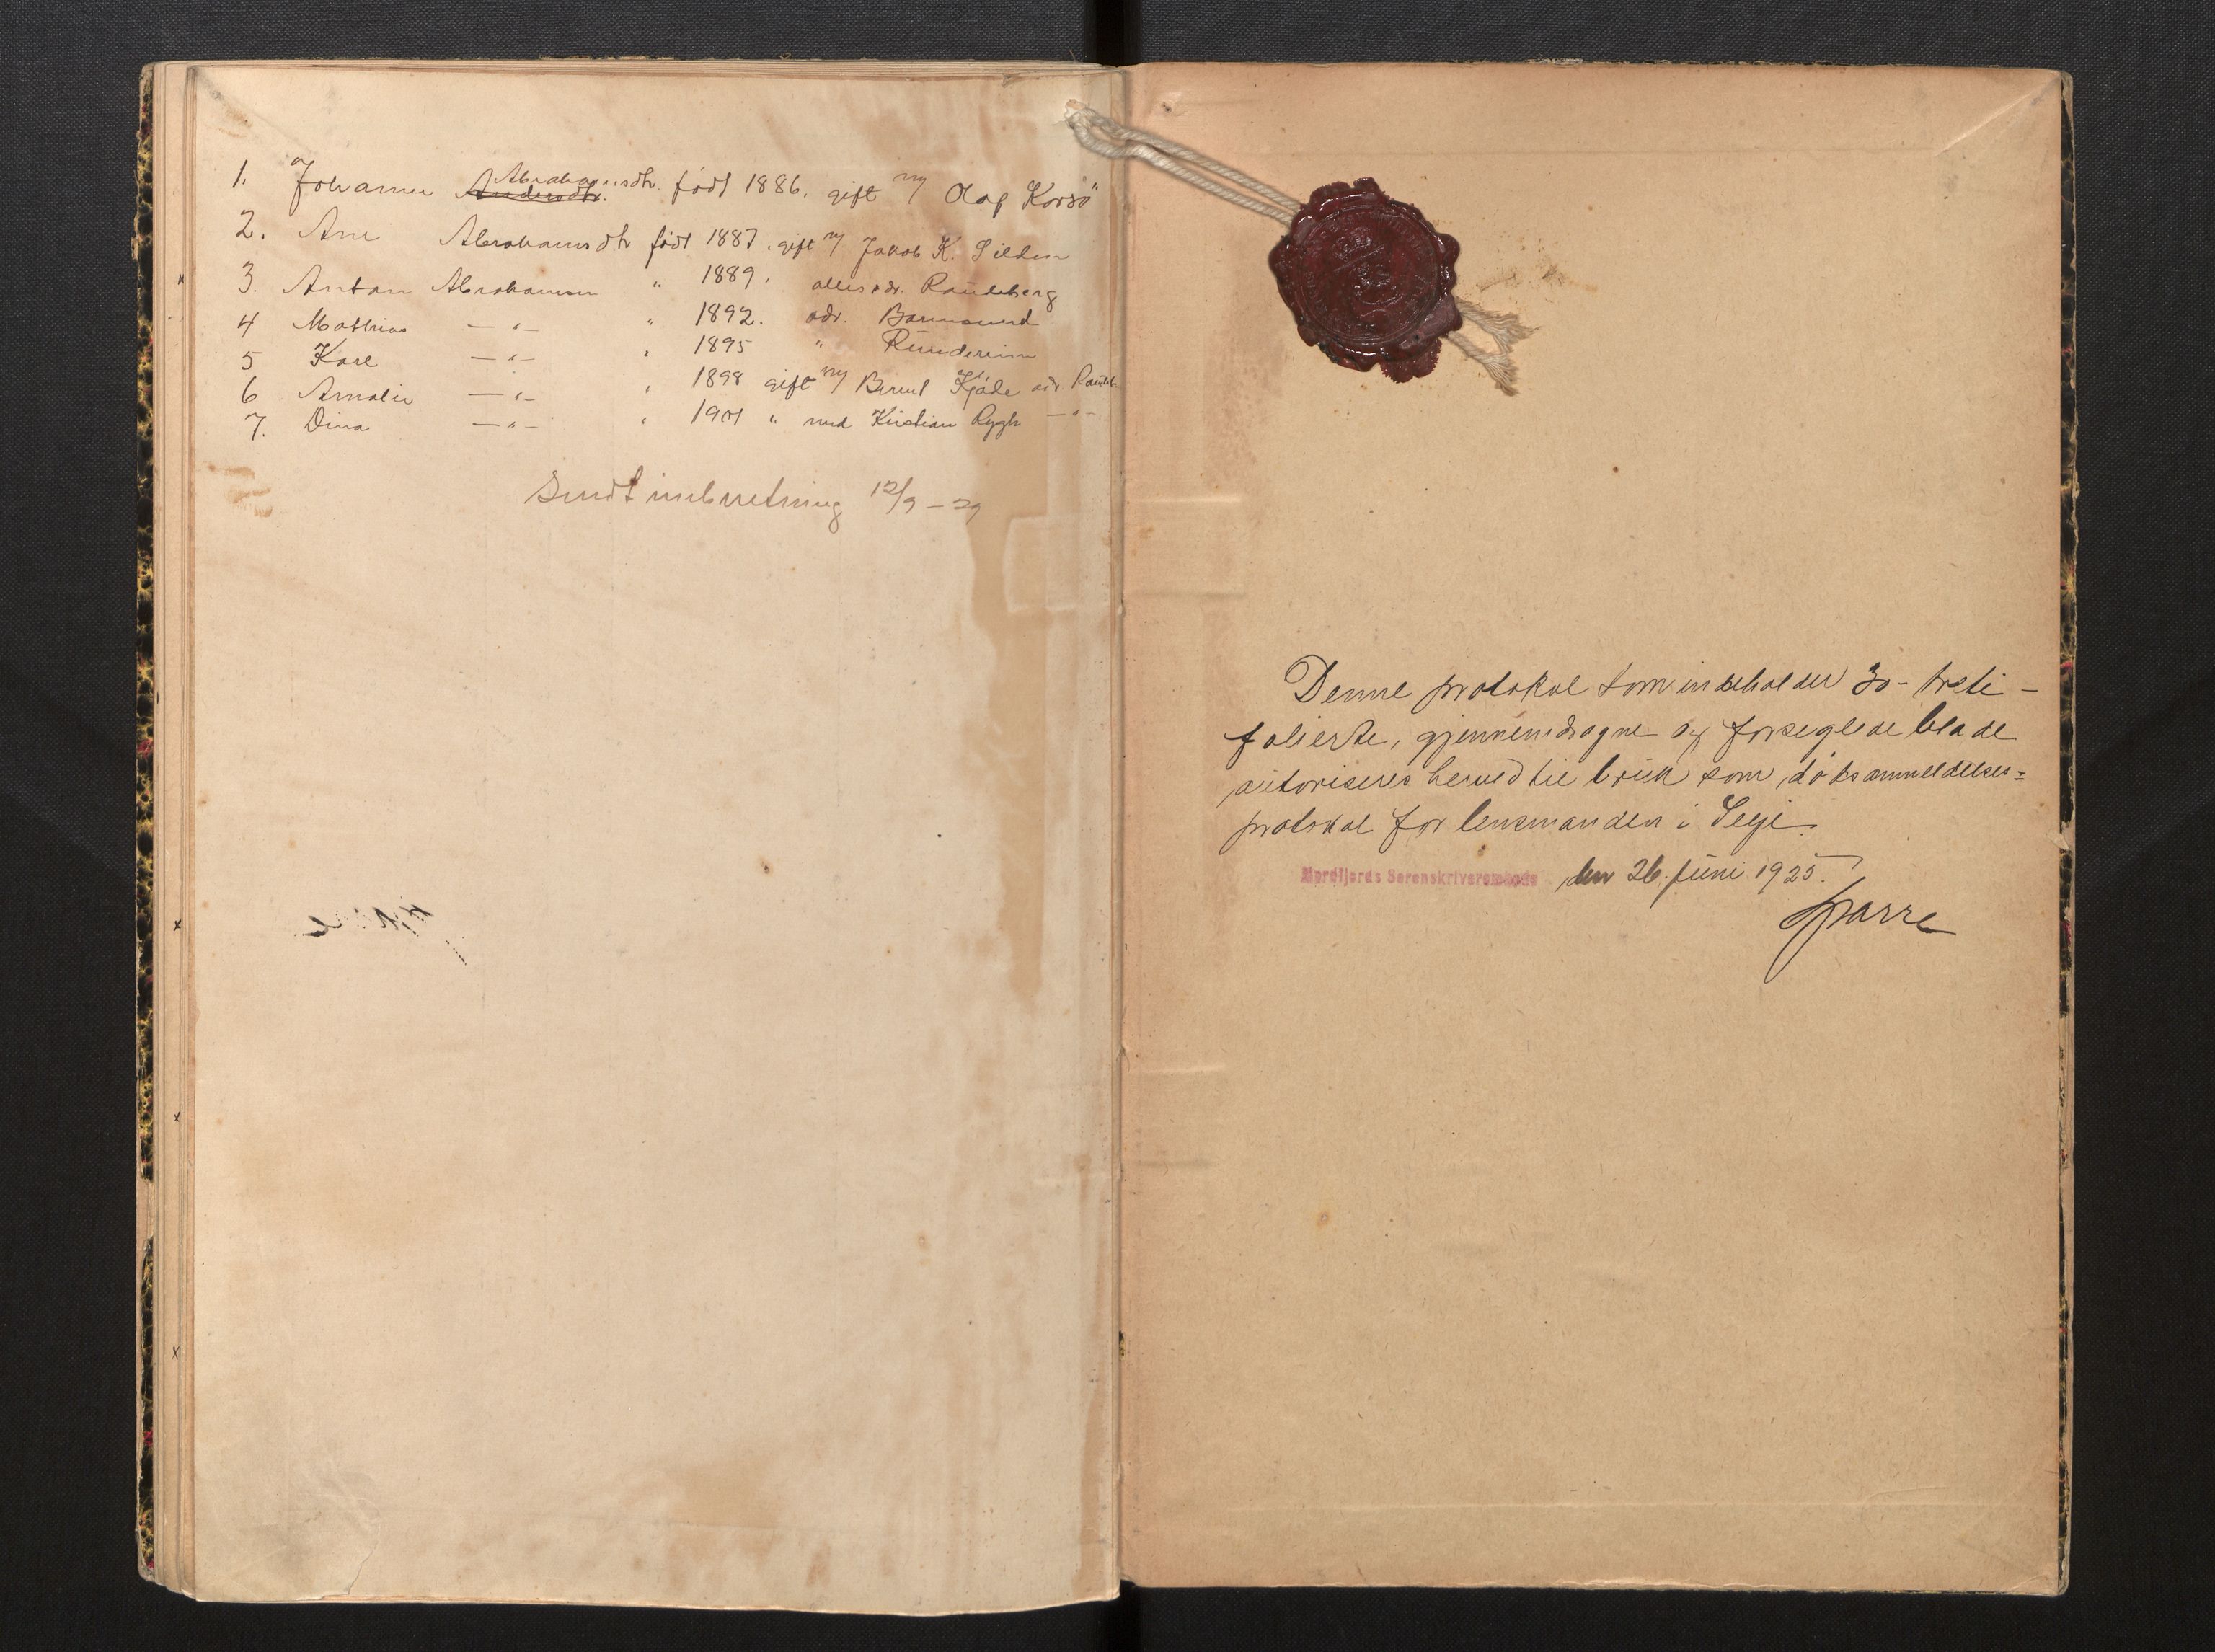 1. Johanne Andersdtr. Abrahamsdtr. født 1886. gift m/ Olaf Korsö
2. Ane Abrahamsdtr født 1887. gift m/ Jakob K. Silden
3. Anton Abrahamsen " 1889. alles adr. Raudeberg
4 Mathias — " — " 1892. adr. Barmsund
5 Karl — " — " 1895 " Rundereim
6 Amalie — " — " 1898 gift m/ Bernt Kjøde adr. Raudeb.
7. Dina — " — " 1901 " med Kristian Rygh — " —
Sendt innberetning 12/9 – 29
Denne protokol som indeholder 30 - treti -
folierte, gjennemdragne og forseglede blade
autoriseres herved til bruk som dødsanmeldelses=
protokol for lensmanden i Selje.
Nordfjords Sorenskriverembede den 26. juni 1925.
Sparre